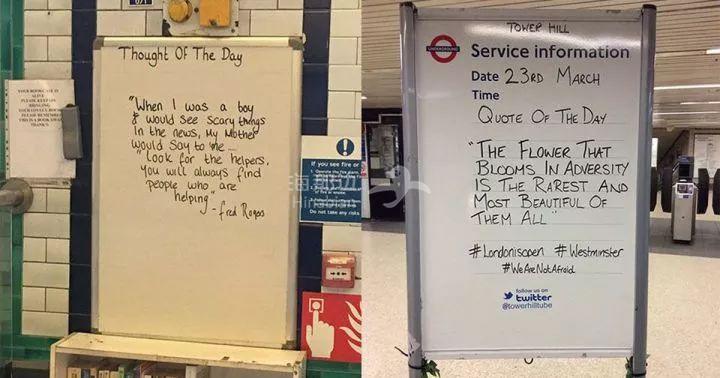 Thought Of The Day
"When I was a boy
I would see scary things
In the news, My Mother
would Say to me...
"Look for the helpers,
you will always find
people who are
helping"
- fred Rogers
YOUR BOOKCASE IS
ALIVE
PLEASE KEEP ON
BRINGING
YOUR LOVELY BOOKS
PLEASE REMEMBER
THIS IS A BOOK SWAP
THANKS
If you see fire or
Do not take any risks
TOWER HILL
UNDERGROUND
Service information
Date 23RD MARCH
Time
QUOTE OF THE DAY
"THE FLOWER THAT
BLOOMS IN ADVERSITY
IS THE RAREST AND
MOST BEAUTIFUL OF
THEM ALL"
#Londonisopen #Westminster
#WeAreNotAfraid
follow us on
twitter
@towerhilltube